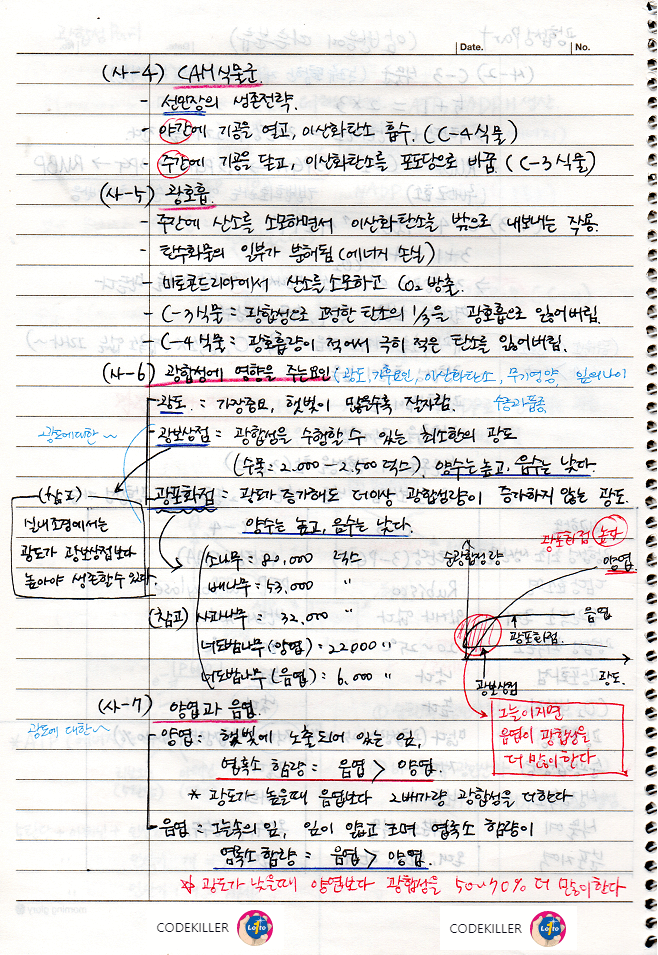 Date. No.
(사-4) CAM식물군.
- 선인장의 생존전략.
- 야간에 기공을 열고, 이산화탄소 흡수. (C-4식물)
- 주간에 기공을 닫고, 이산화탄소를 포도당으로 바꿈 (C-3식물)
(사-5) 광호흡.
- 주간에 산소를 소모하면서 이산화탄소를 밖으로 내보내는 작용.
- 탄수화물의 일부가 분해됨 (에너지 손실)
- 미토콘드리아에서 산소를 소모하고 CO2 방출.
- C-3식물 = 광합성으로 고정한 탄소의 1/3을 광호흡으로 잃어버림.
- C-4식물 = 광호흡량이 적어서 극히 적은 탄소를 잃어버림.
(사-6) 광합성에 영향을 주는요인 (광도, 기후요인, 이산화탄소, 무기영양, 잎의나이
수종과품종
- 광도. = 가장중요, 햇빛이 많을수록 잘자람.
광도에대한~
- 광보상점 = 광합성을 수행할 수 있는 최소한의 광도
(수목 = 2.000 - 2.500 럭스). 양수는높고, 음수는 낮다.
- 광포화점 = 광도가 증가해도 더이상 광합성량이 증가하지 않는 광도.
양수는 높고, 음수는 낮다.
(참고)
실내조경에서는
광도가 광보상점보다
높아야 생존할수 있다.
소나무 = 80,000 럭스
배나무 = 53,000 "
(참고) 사과나무 = 32,000 "
너도밤나무 (양엽) = 22000 "
너도밤나무 (음엽) = 6.000 "
순광합성량
광포화점 높다
양엽.
음엽
광포화점.
광보상점
광도.
그늘이지면
음엽이 광합성을
더 많이한다.
(사-7) 양엽과 음엽.
광도에 대한~
- 양엽 = 햇빛에 노출되어 있는 잎,
엽록소 함량 = 음엽 > 양엽.
* 광도가 높을때 음엽보다 2배가량 광합성을 더한다
- 음엽 = 그늘속의 잎, 잎이 얇고 크며 엽록소 함량이
엽록소 함량 = 음엽 > 양엽.
* 광도가 낮을때 양엽보다 광합성을 50~70% 더 많이한다
CODEKILLER Lotto CODEKILLER Lotto